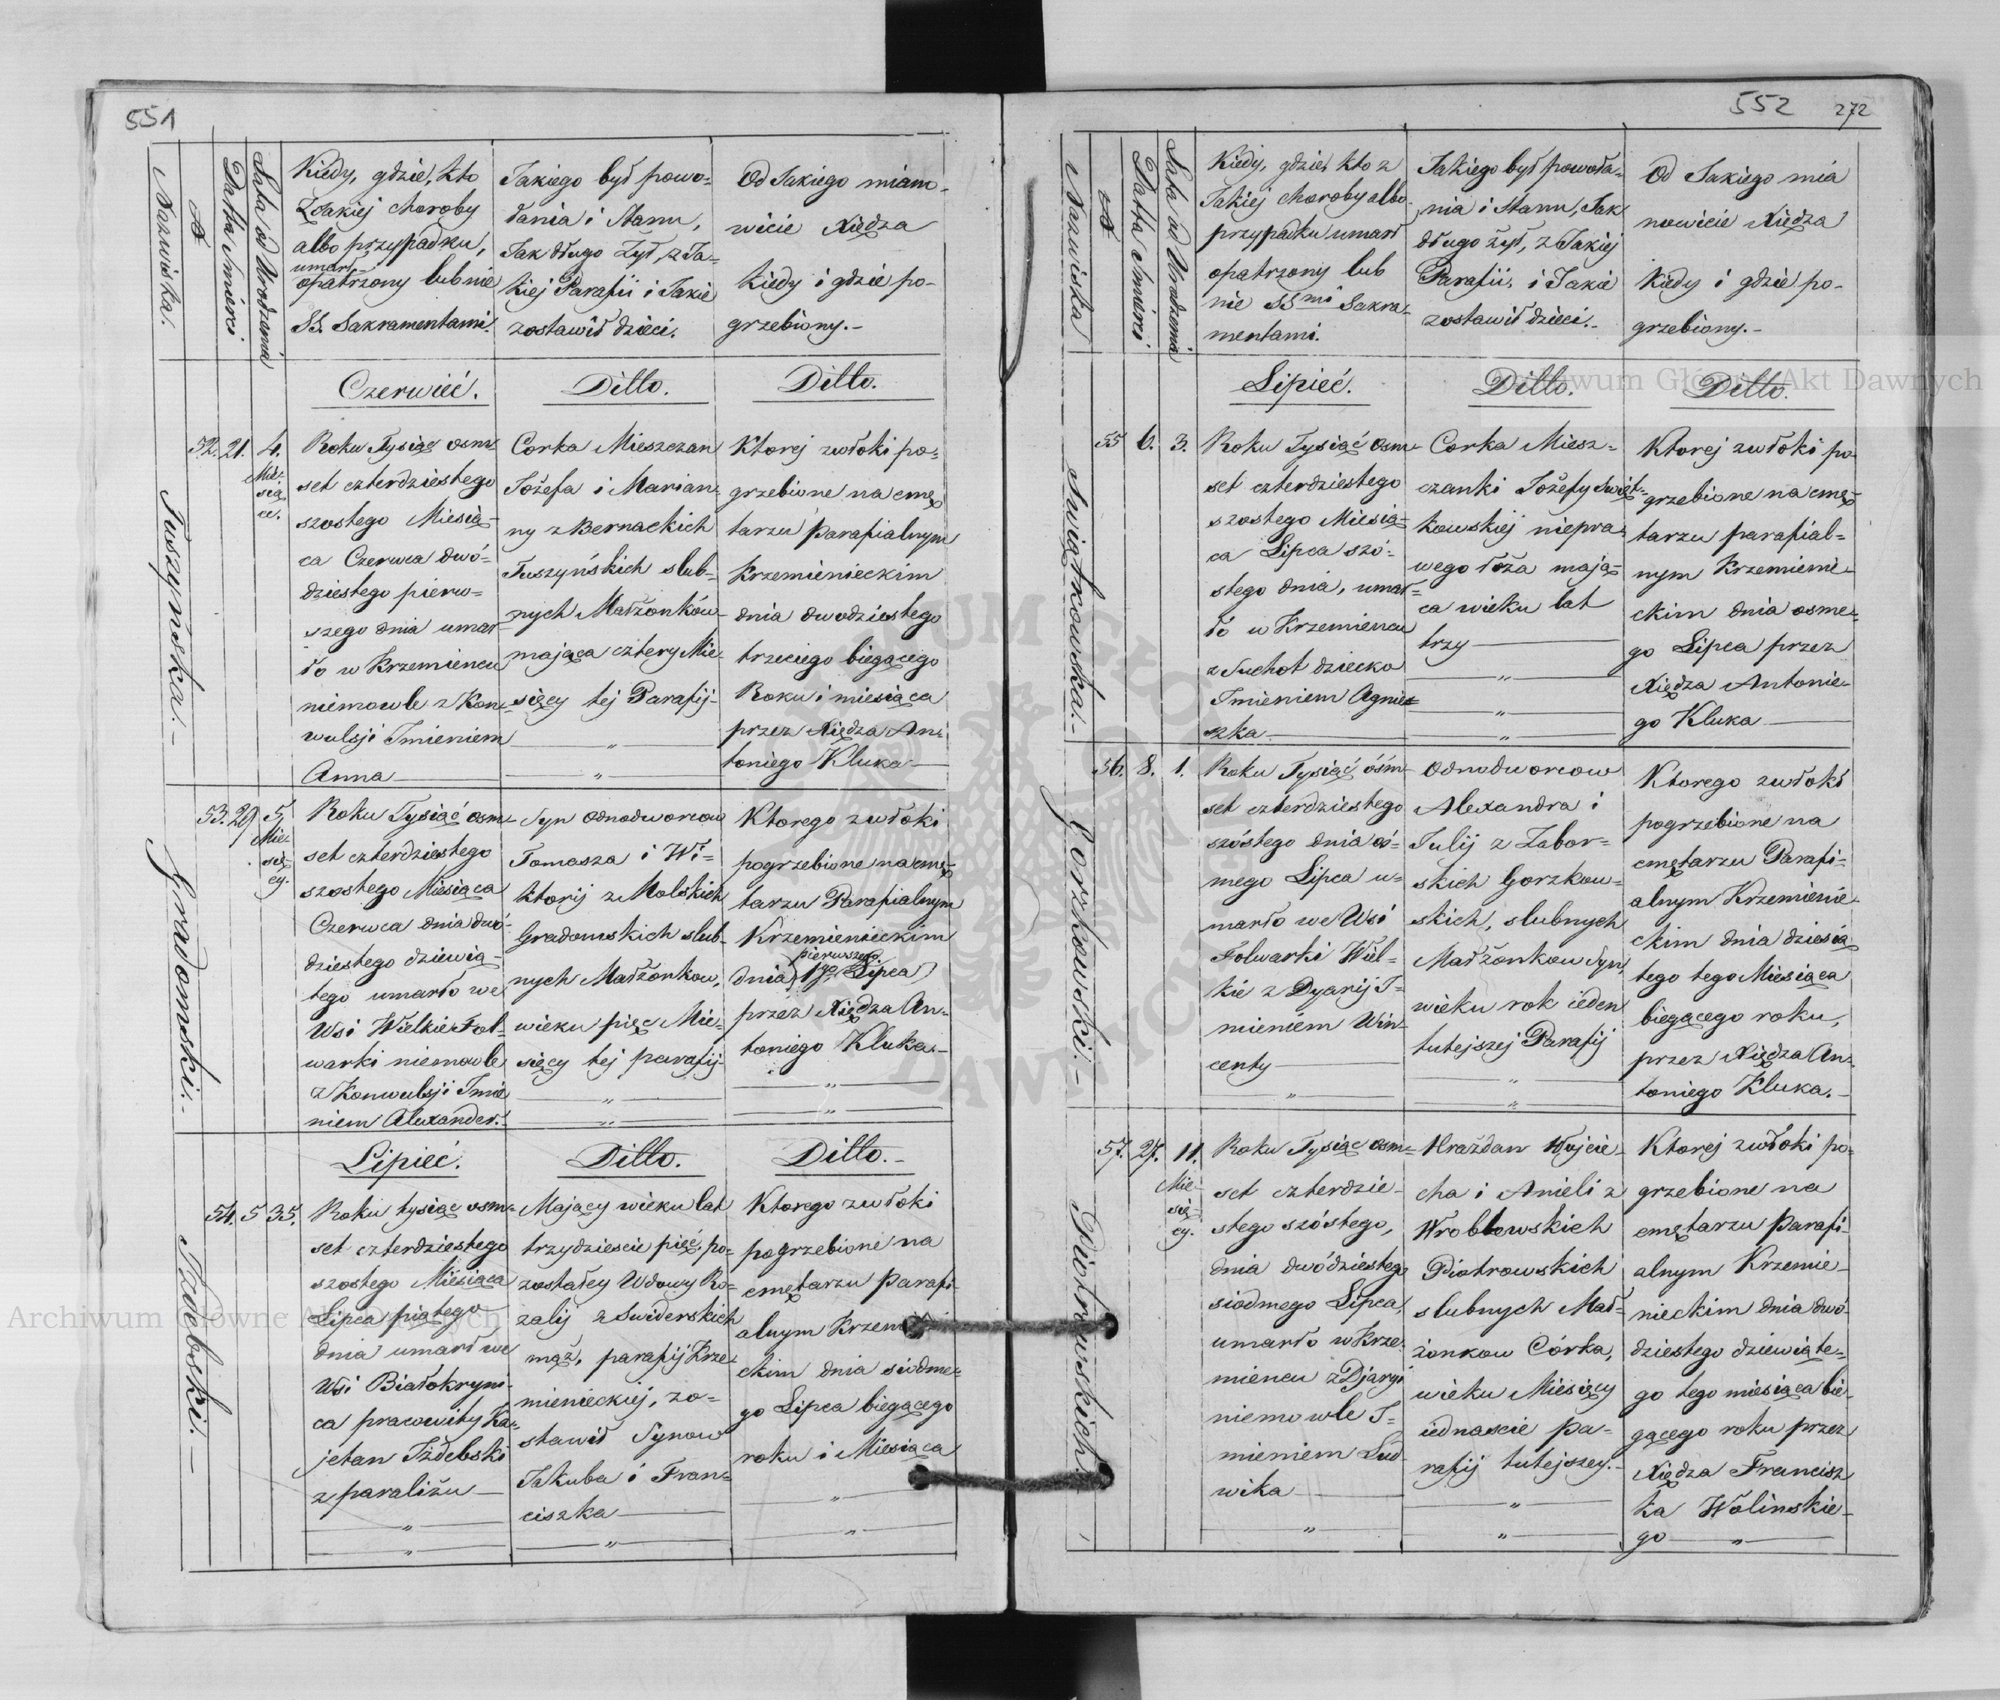 551
Nazwiska.
№
Datta Smierci
Lata od Urodzenia
Kiedy, gdzie, kto
z Jakiej choroby
albo przypadku,
umarł
opatrzony lub nie
SS. Sakramentami.
Jakiego był powo-
łania i Stanu,
Jak długo Żył, z Ja-
kiej Parafii i Jakie
zostawił dzieci.
Od Jakiego miano-
wicie Xiędza
kiedy i gdzie po-
grzebiony.-
Czerwieć.
Ditto.
Ditto.
Tuszynska.-
52.
21.
4.
Mie-
sią-
ce.
Roku Tysiąc osm-
set czterdziestego
szostego Miesią-
ca Czerwca dwó-
dziestego pierw-
szego dnia umar-
ło w Krzemiencu
niemowle z Kon-
wulsji Imieniem
Anna
Corka Mieszczan
Jożefa i Marian-
ny z Bernackich
Tuszyńskich slub-
nych Małżonków
mająca cztery Mie-
sięcy tej Parafij-
Ktorej zwłoki po-
grzebione na cmę-
tarzu parafialnym
Krzemienieckim
dnia dwodziestego
trzeciego biegącego
Roku i miesiąca
przez Xiędza An-
toniego Kluka
Gradowski.-
53.
29
5
Mie-
się-
cy.
Roku Tysiąć osm-
set czterdziestego
szostego Miesiąca
Czerwca dnia dwó-
dziestego dziewią-
tego umarło we
Wsi Wielkie Fol-
warki niemowle
z Konwulsji Imie
niem Alexander.
Syn odnodworcow
Tomasza i Wi-
ktorij z Molskich
Gradowskich slub-
nych Małżonkow,
wieku pięc Mie-
sięcy tej parafij-
Ktorego zwłoki
pogrzebione na cmę-
tarzu Parafialnym
Krzemienieckim
pierwszego
dnia 1go Lipca
przez Xiędza An-
toniego Kluka.-
Lipieć.
Ditto.
Ditto.-
Izdebski.-
54.
5
35.
Roku tysiąc osm-
set czterdziestego
szostego Miesiąca
Lipca piątego
dnia umarł we
Wsi Białokryni-
ca pracowity Ka-
jetan Iżdebski
z paraliżu
Mający wieku lat
trzydziescie pięć, po-
zostałey Wdowy Ro-
zalij z Swiderskich
mąż, parafij Krze-
mienieckiej, zo-
stawił Synow
Jakuba i Fran-
ciszka
Ktorego zwłoki
pogrzebione na
cmętarzu parafi-
alnym Krzemieni-
ckim dnia siodme-
go Lipca biegącego
roku i Miesiąca
552
272
Nazwiska
№
Datta Smierci
Lata od Urodzenia
Kiedy, gdzie, kto z
Jakiej choroby albo
przypadku umarł
opatrzony lub
nie SSmi Sakra-
mentami.
Jakiego był powoła-
nia i Stanu, Jak
długo żył, z Jakiej
Parafii, i Jakie
zostawił dzieci.-
Od Jakiego mia
nowicie Xiędza
kiedy i gdzie po-
grzebiony.-
Lipieć.
Ditto.
Ditto.
Swiątkowska.-
55
6.
3.
Roku Tysiąć osm-
set czterdziestego
szostego Miesią-
ca Lipca szó-
stego dnia, umar-
ło w Krzemiencu
z Suchot dziecko
Imieniem Agnie-
szka
Corka Miesz-
czanki Jożefy Swiąt-
kowskiej niepra-
wego łoża mają-
ca wieku lat
trzy
Ktorej zwłoki po-
grzebione na cmę-
tarzu parafial-
nym Krzemienie-
ckim dnia osme-
go Lipca przez
Xiędza Antonie-
go Kluka
Gorzkowski.-
56.
8.
1.
Roku Tysiąć ósm-
set czterdziestego
szóstego dnia ós-
mego Lipca u-
marło we Wsi
Folwarki Wiel-
kie z Dyarij I-
mieniem Win-
centy
Odnodworcow
Alexandra i
Julij z Zabor-
skich Gorzkow-
skich, slubnych
Małżonkow Syn,
wieku rok ieden
tutejszej Parafij
Ktorego zwłoki
pogrzebione na
cmętarzu Parafi-
alnym Krzemienie-
ckim dnia dziesią
tego tego Miesiąca
biegącego roku,
przez Xiędza An-
toniego Kluka.-
Piotrowskich
57.
27.
11.
Mie-
się-
cy.
Roku Tysiąc osm-
set czterdzie-
stego szóstego,
dnia dwódziestego
siodmego Lipca,
umarło w Krze-
miencu z Djaryi
niemowle I-
mieniem Lud-
wika
Hrażdan Wojcie-
cha i Anieli z
Wroblowskich
Piotrowskich
slubnych Mał-
żonkow Córka,
wieku Miesięcy
iednascie pa-
rafij tutejszey.-
Ktorej zwłoki po-
grzebione na
cmętarzu parafi-
alnym Krzemie-
nieckim dnia dwó-
dziestego dziewiąte-
go tego miesiąca bie-
gącego roku przez
Xiędza Francisz
ka Wolinskie-
go
Archiwum Główne Akt Dawnych
Archiwum Główne Akt Dawnych